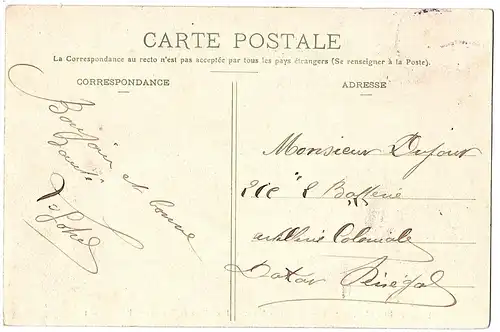 CARTE POSTALE
La Correspondance au recto n'est pas acceptée par tous les pays étrangers (Se renseigner à la Poste).
CORRESPONDANCE
Bonjour et bonne
Santé
ADRESSE
Monsieur Dufour
Batterie
artillerie Coloniale
Dakar Sénégal